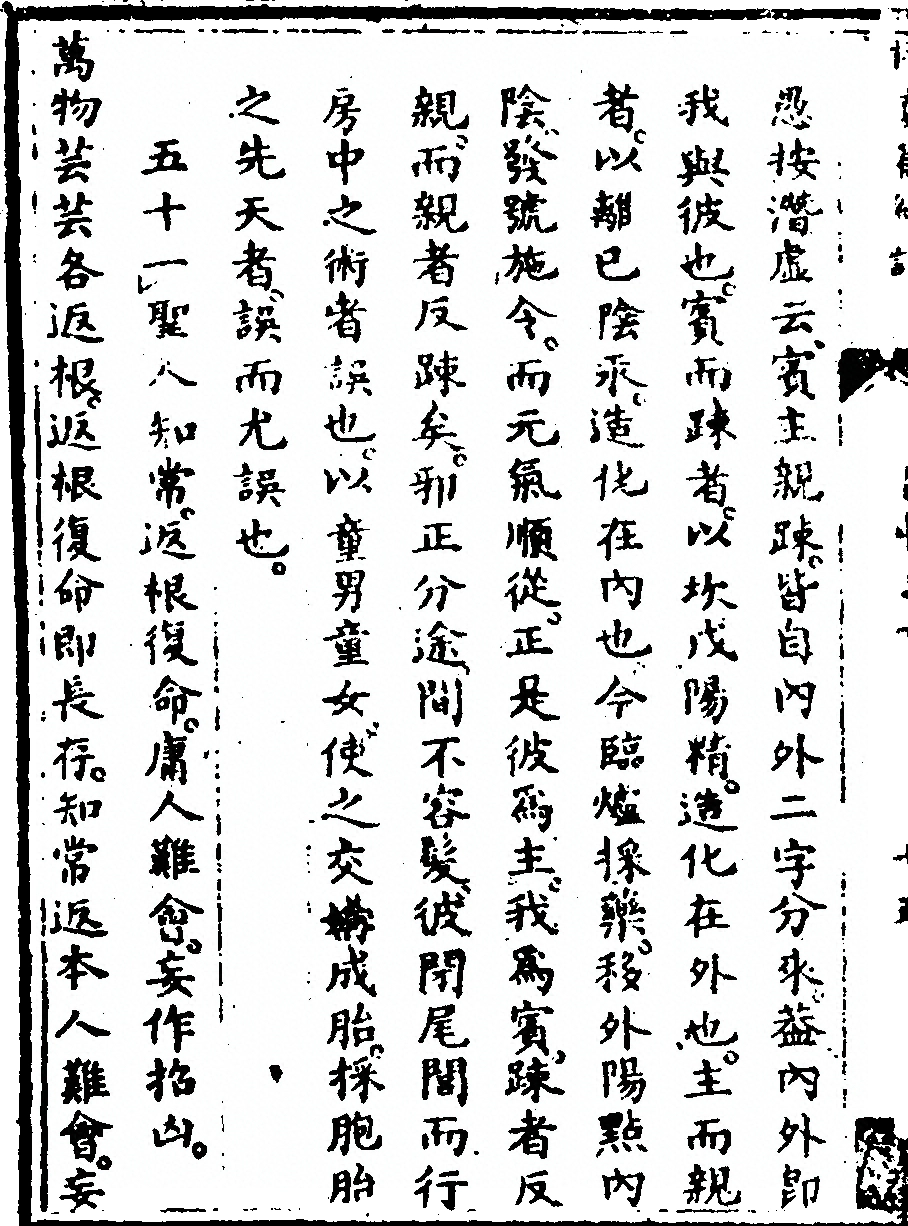 愚按潛虛云、賓主親踈。皆自內外二字分來。葢內外卽
我與彼也。賓而踈者。以坎戊陽精。造化在外也。主而親
者。以離已陰汞。造化在內也今臨爐採藥。移外陽點內
陰、發號施令。而元氣順從。正是彼爲主。我爲賓、踈者反
親。而親者反踈矣。邪正分途、間不容髮。彼閉尾閭而行
房中之術者誤也。以童男童女、使之交媾成胎。採胞胎
之先天者、誤而尤誤也。
五十一聖人知常。返根復命。庸人難會。妄作招凶。
萬物芸芸各返根。返根復命卽長存。知常返本人難會。妄